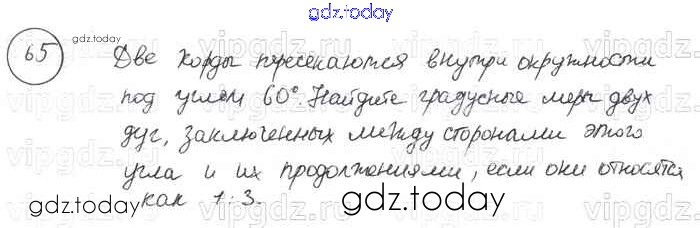 gdz.today
65
Две хорды пересекаются внутри окружности
под углом 60°. Найдите градусные меры двух
дуг, заключенных между сторонами этого
угла и их продолжениями, если они относятся
как 1:3.
gdz.today
gdz.today